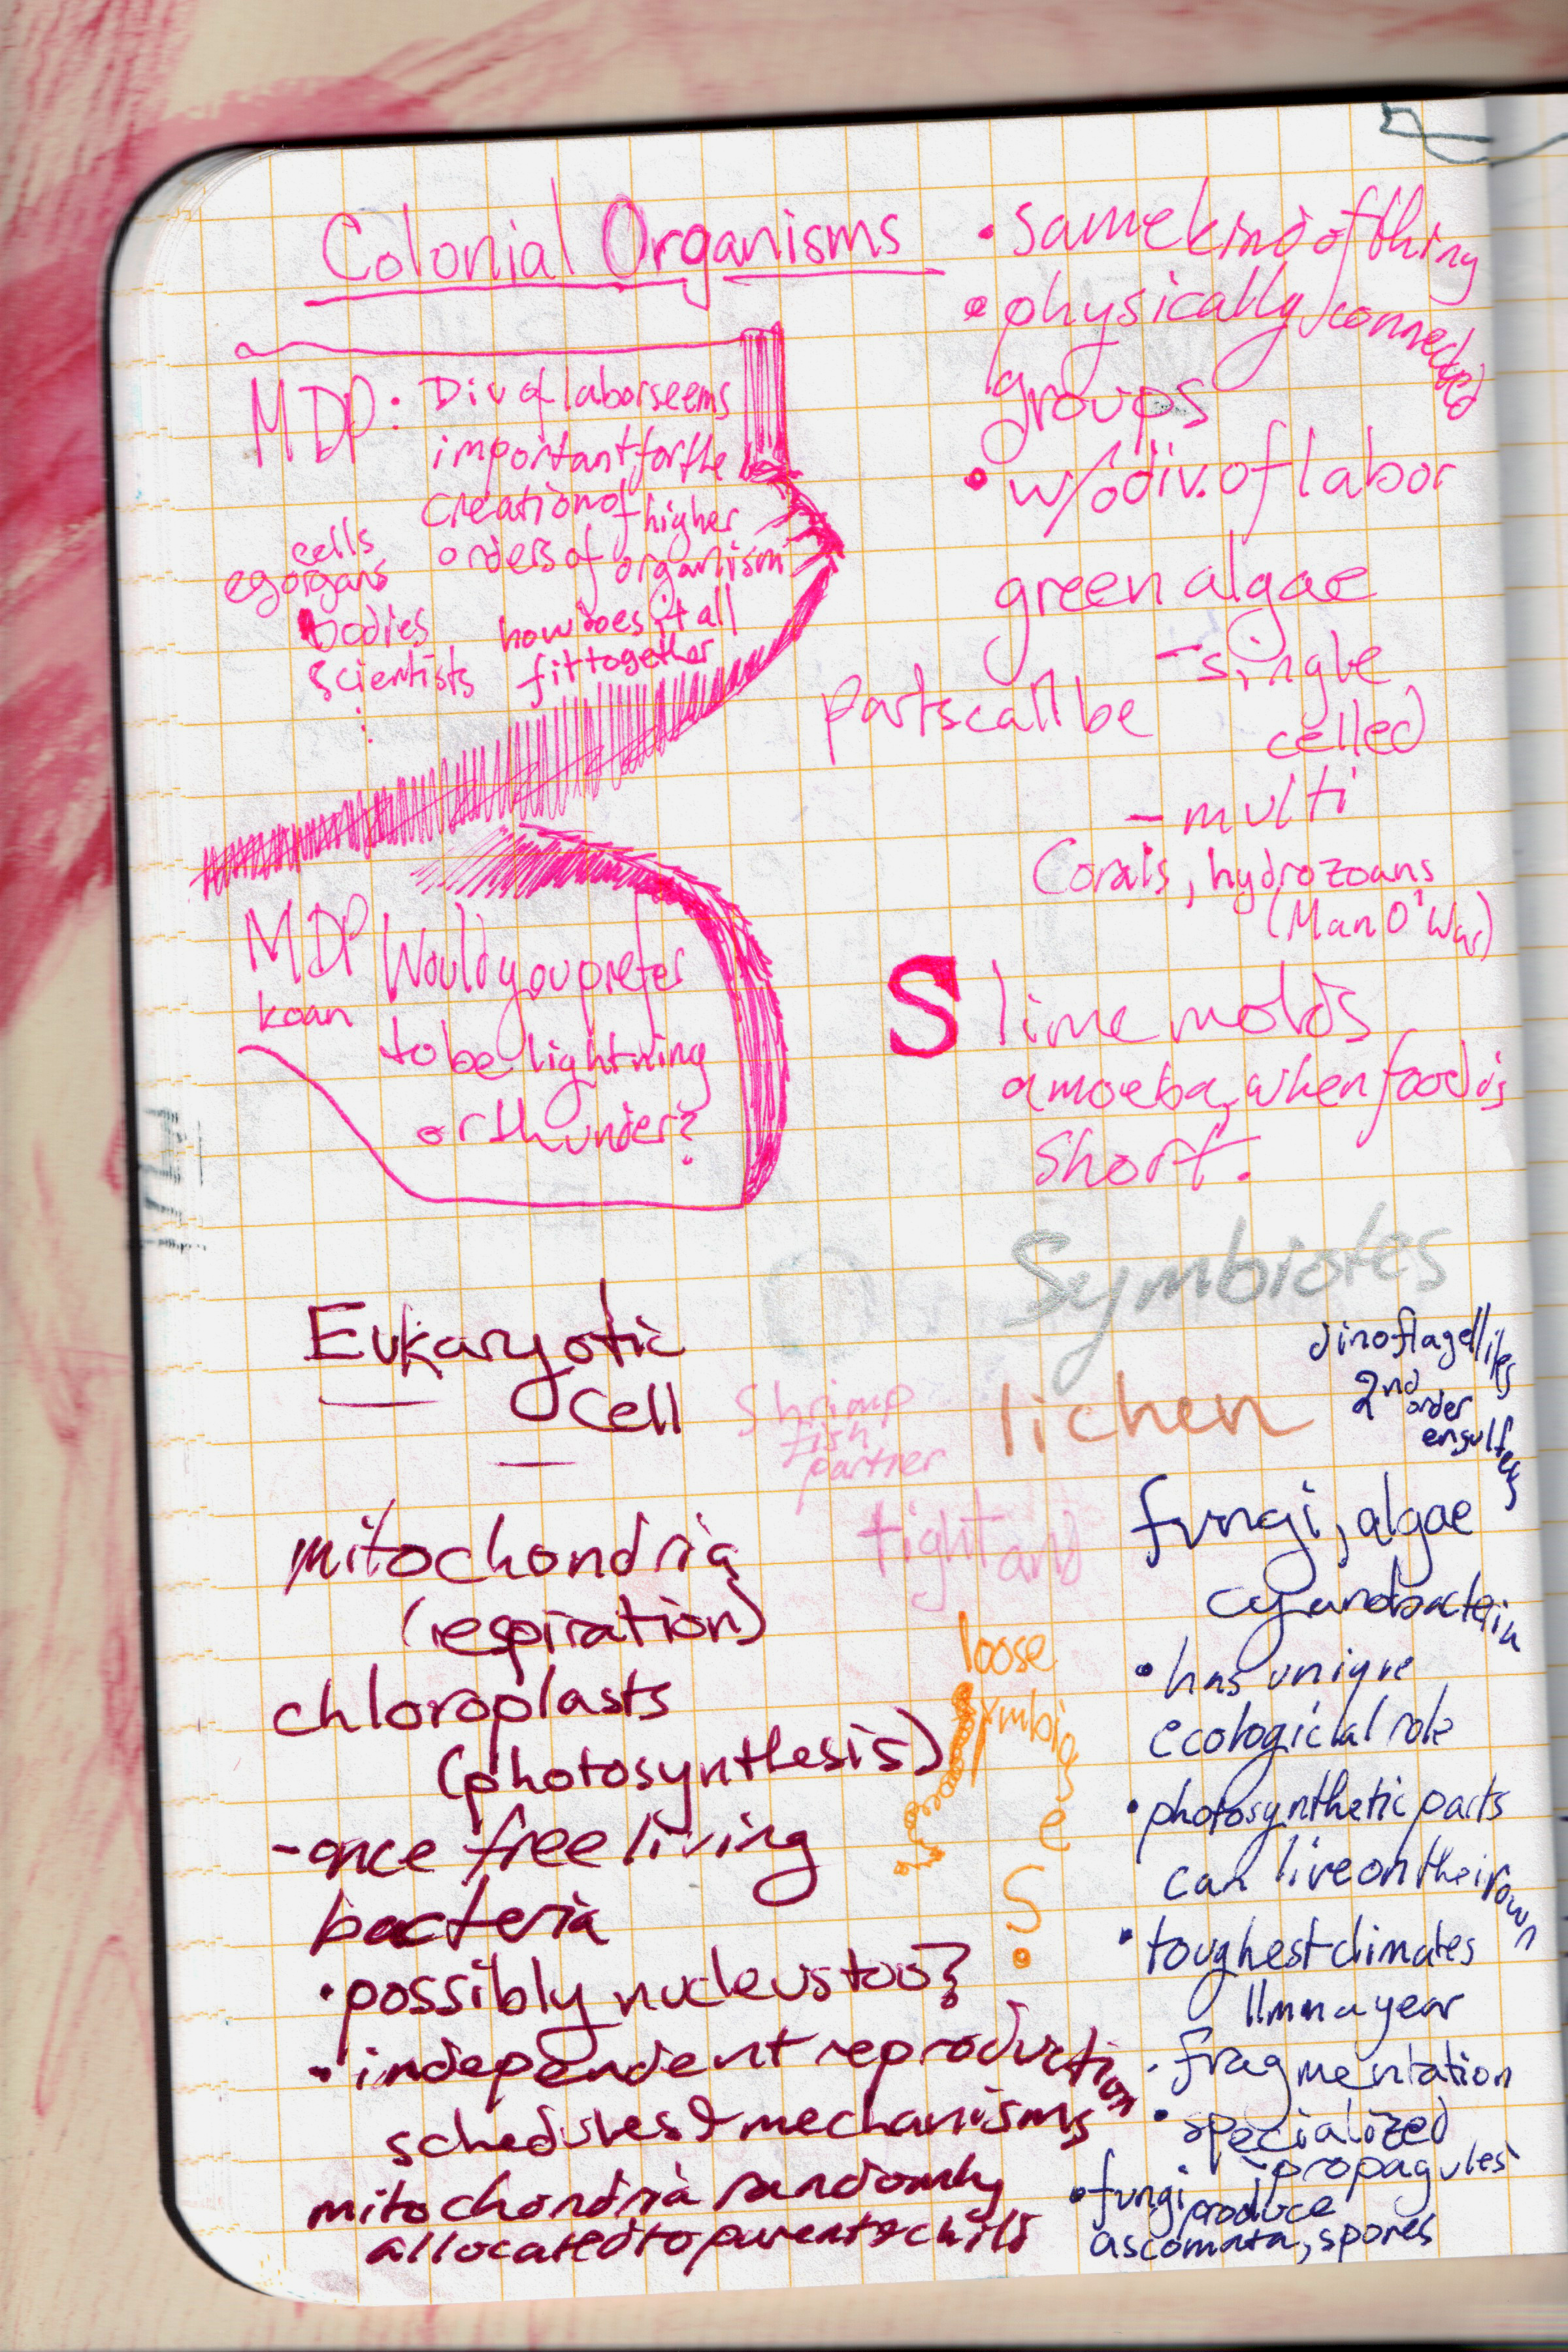 Colonial Organisms
• same kind of thing
• physically connected
groups
• w/o div. of labor
green algae
- single
celled
parts call be
- multi
Corals, hydrozoans
(Man O' War)
Slime molds
amoeba, when food is
short.
MDP: Div of labor seems
important for the
creation of higher
orders of organism
cells
eg organs
bodies
scientists
how does it all
fit together
MDP
koan
Would you prefer
to be lightning
or thunder?
Symbiotes
Eukaryotic
Cell
mitochondria
(respiration)
chloroplasts
(photosynthesis)
- once free living
bacteria
• possibly nucleus too?
• independent reproduction
schedules & mechanisms
mitochondria randomly
allocated to parent & child
shrimp
fish
partner
tight and
loose
symbioses.
lichen
dinoflagellites
2nd
order
fungi, algae
cyanobacteria
• has unique
ecologicial role
• photosynthetic parts
can live on their own
• toughest climates
11mm a year
• fragmentation
• specialized
propagules
• fungi produce
ascomata, spores